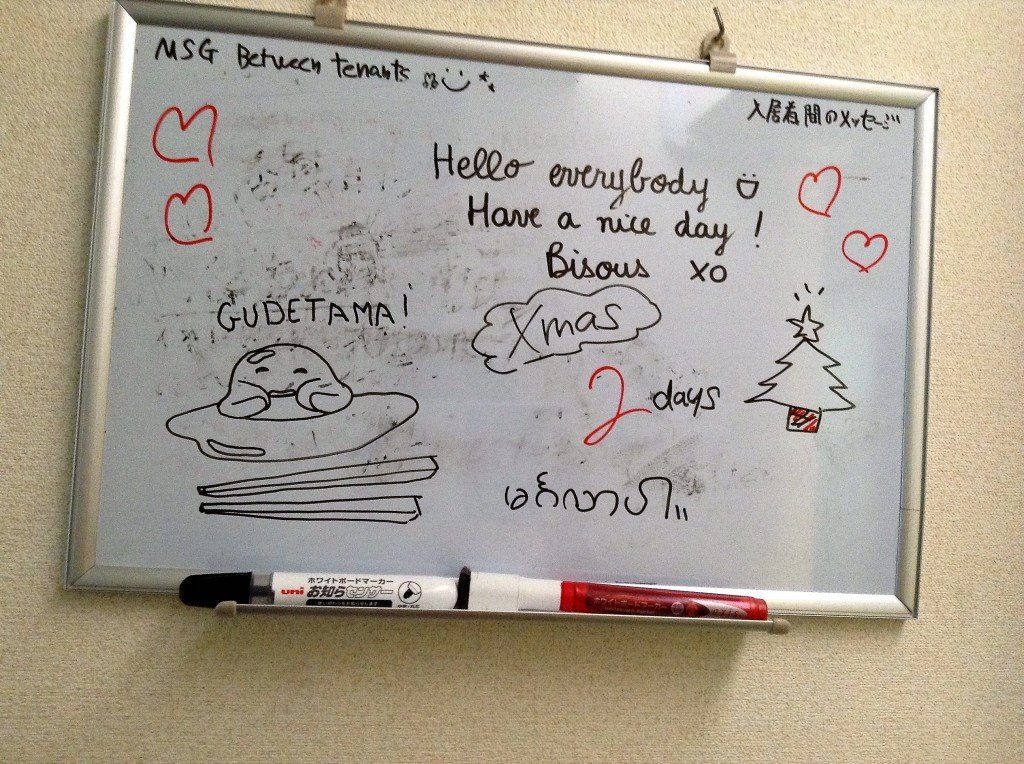 MSG Between tenants
入居者間のメッセージ
Hello everybody
Have a nice day !
Bisous xo
GUDETAMA!
Xmas
2 days
မင်္ဂလာပါ။
ホワイトボードマーカー
uni お知らセンサー
ホワイトボードマーカー